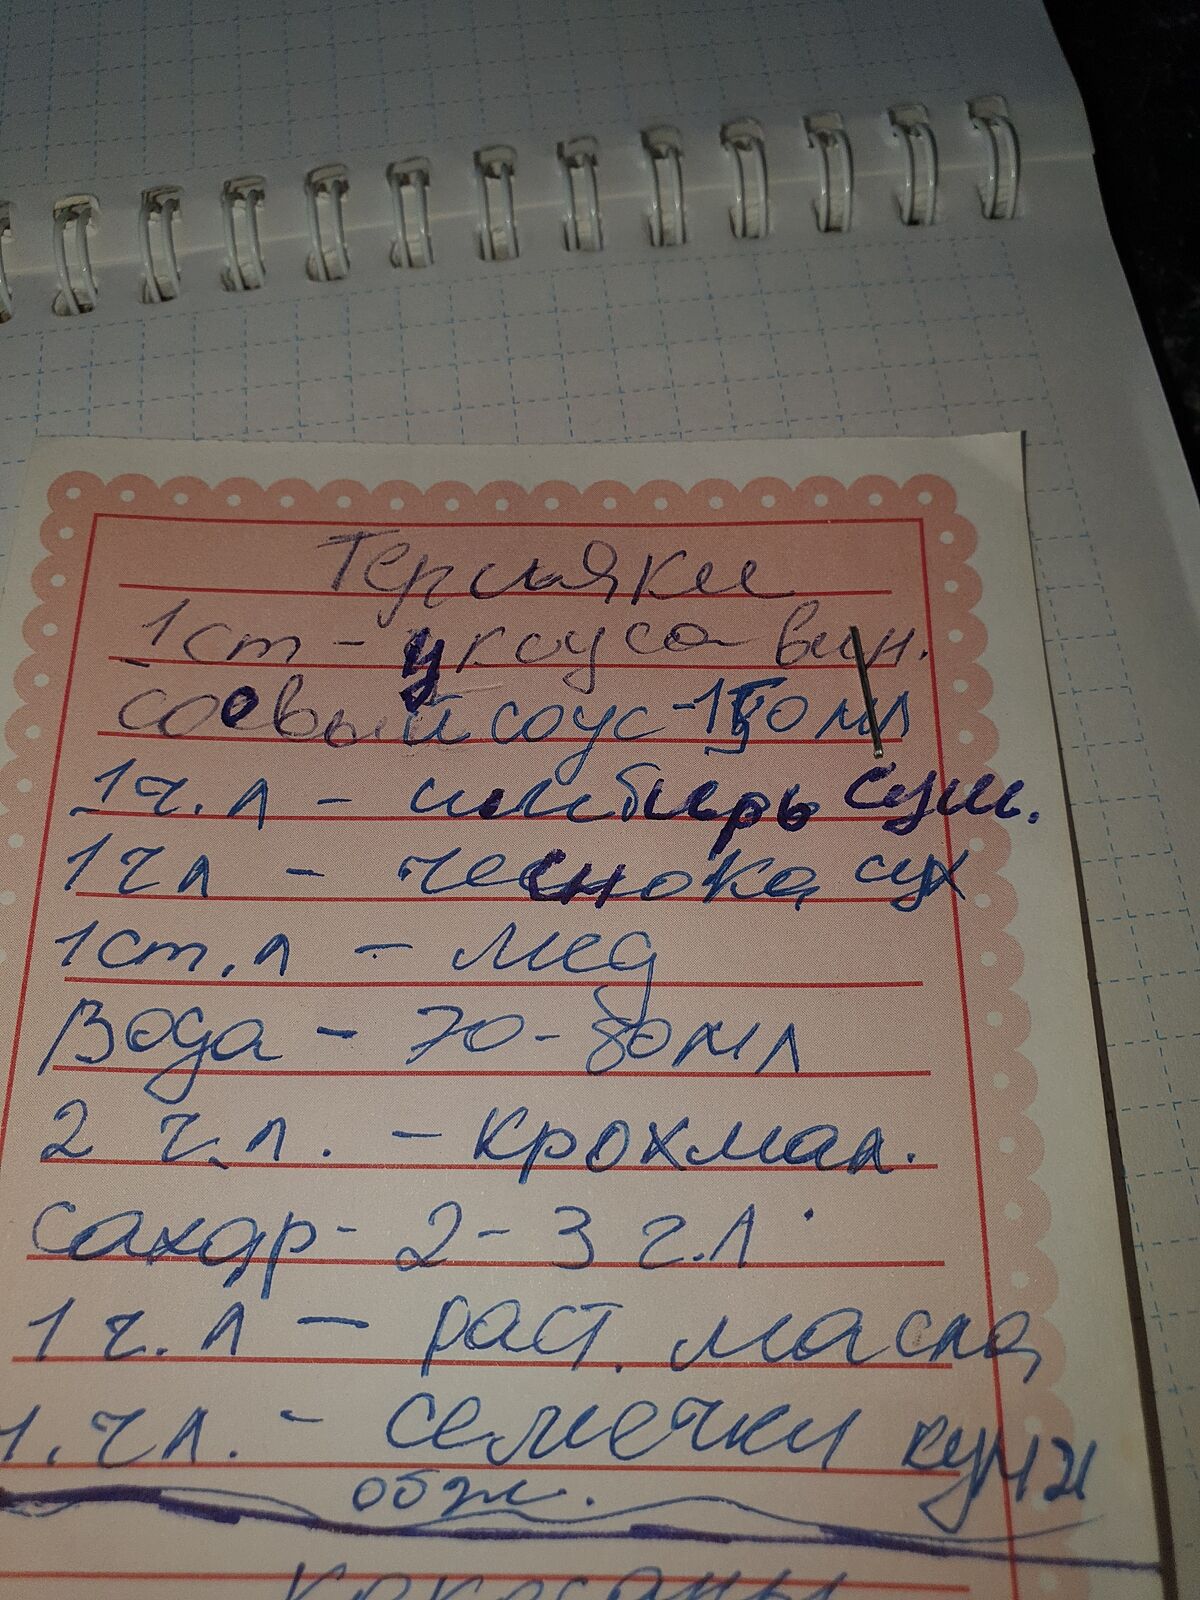 Терияки
1ст - уксуса вин.
соевый соус - 150 мл
1 ч.л - имбирь суш.
1 ч л - чеснока сух
1 ст.л - мед
Вода - 70-80 мл
2 ч.л. - крохмал.
сахар - 2-3 ч.л.
1 ч.л - раст. масла
1.ч л. - семечки кунж
обж.